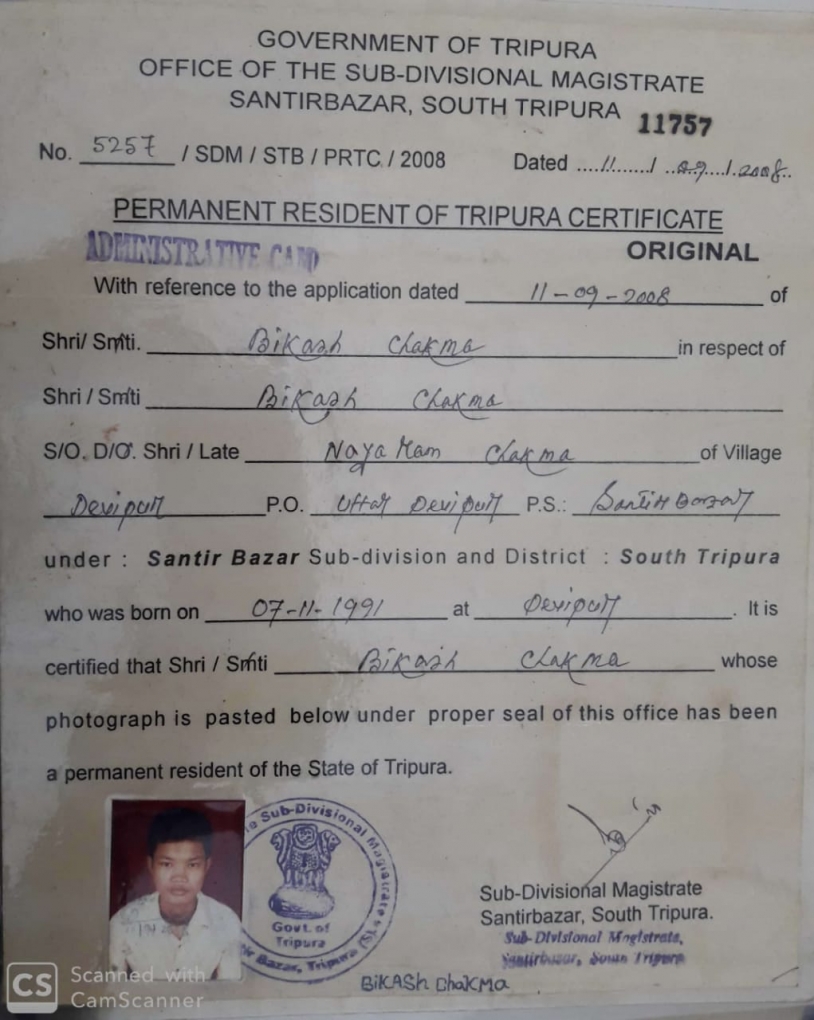 GOVERNMENT OF TRIPURA
OFFICE OF THE SUB-DIVISIONAL MAGISTRATE
SANTIRBAZAR, SOUTH TRIPURA 11757
No. 5257 / SDM / STB / PRTC / 2008 Dated ....11......./ ..09..../.2008..
PERMANENT RESIDENT OF TRIPURA CERTIFICATE
ADMINISTRATIVE CAMP ORIGINAL
With reference to the application dated 11-09-2008 of
Shri/ Smti. Bikash Chakma in respect of
Shri / Smti Bikash Chakma
S/O. D/O. Shri / Late Naya Ram Chakma of Village
Devipur P.O. Uttar Devipur P.S.: Santir Bazar
under : Santir Bazar Sub-division and District : South Tripura
who was born on 07-11-1991 at Devipur . It is
certified that Shri / Smti Bikash Chakma whose
photograph is pasted below under proper seal of this office has been
a permanent resident of the State of Tripura.
e Sub-Divisional Magistrate
Govt. of
Tripura
ir Bazar, Tripura (S)
Sub-Divisional Magistrate
Santirbazar, South Tripura.
Sub-Divisional Magistrate,
Santirbazar, South Tripura
BiKASh ChaKMA
CS Scanned with
CamScanner